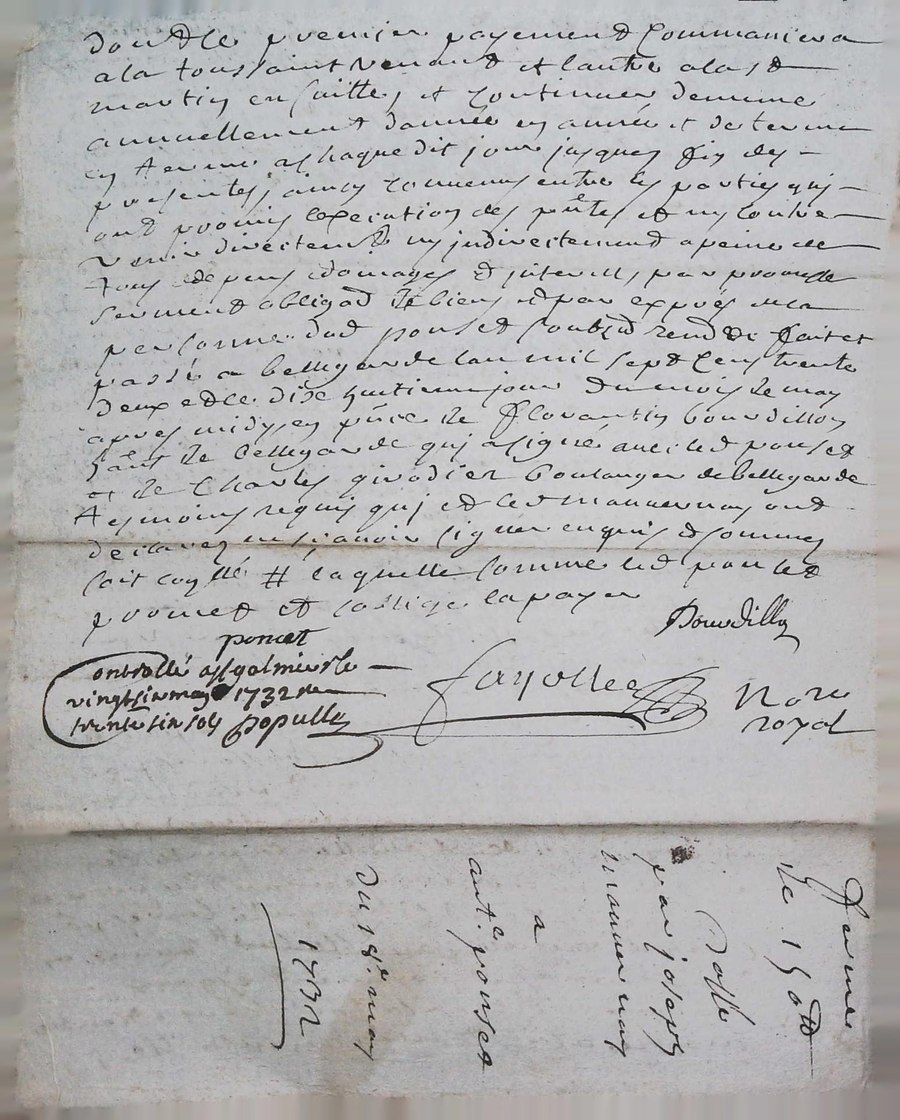 dont le premier payement Commancera
a la toussaint venant et lautre a la st
martin en suitte, et Continuer de mime
annuellement dannée en année et de terme
en terme a chaque dit jour jusques fin des
presentes, ainsy convenus entre les parties quj
ont promis lexecution des pntes et ny contre
venir directemt ny jndirectement a peine de
tous depens domages et jnterests, par promesse
serment obligaon de biens et par expres de la
personne dud ponset soubz rend Fait et
passé a bellegarde lan mil sept Cens trente
deux et le dix huitieme jour du mois de may
apres midy en pnce de Florantin bourdillon
hant de bellegarde quj a signé avec led ponset
et de Charles girodier boulanger de bellegarde
tesmoins requis quj et led manuernay ont
declarez ne sçavoir signer enquis et sommez
soit Coyllé # laquelle somme led ponset
promet et soblige la payer
Bourdillon
poncet
Controllé a st galmier le
vingt six may 1732 Re
trente six sols populle
fayolle
Nore
royal
ferme
de 150 tt
passé
par joseph
manuernay
a
ante ponset
du 18e may
1732